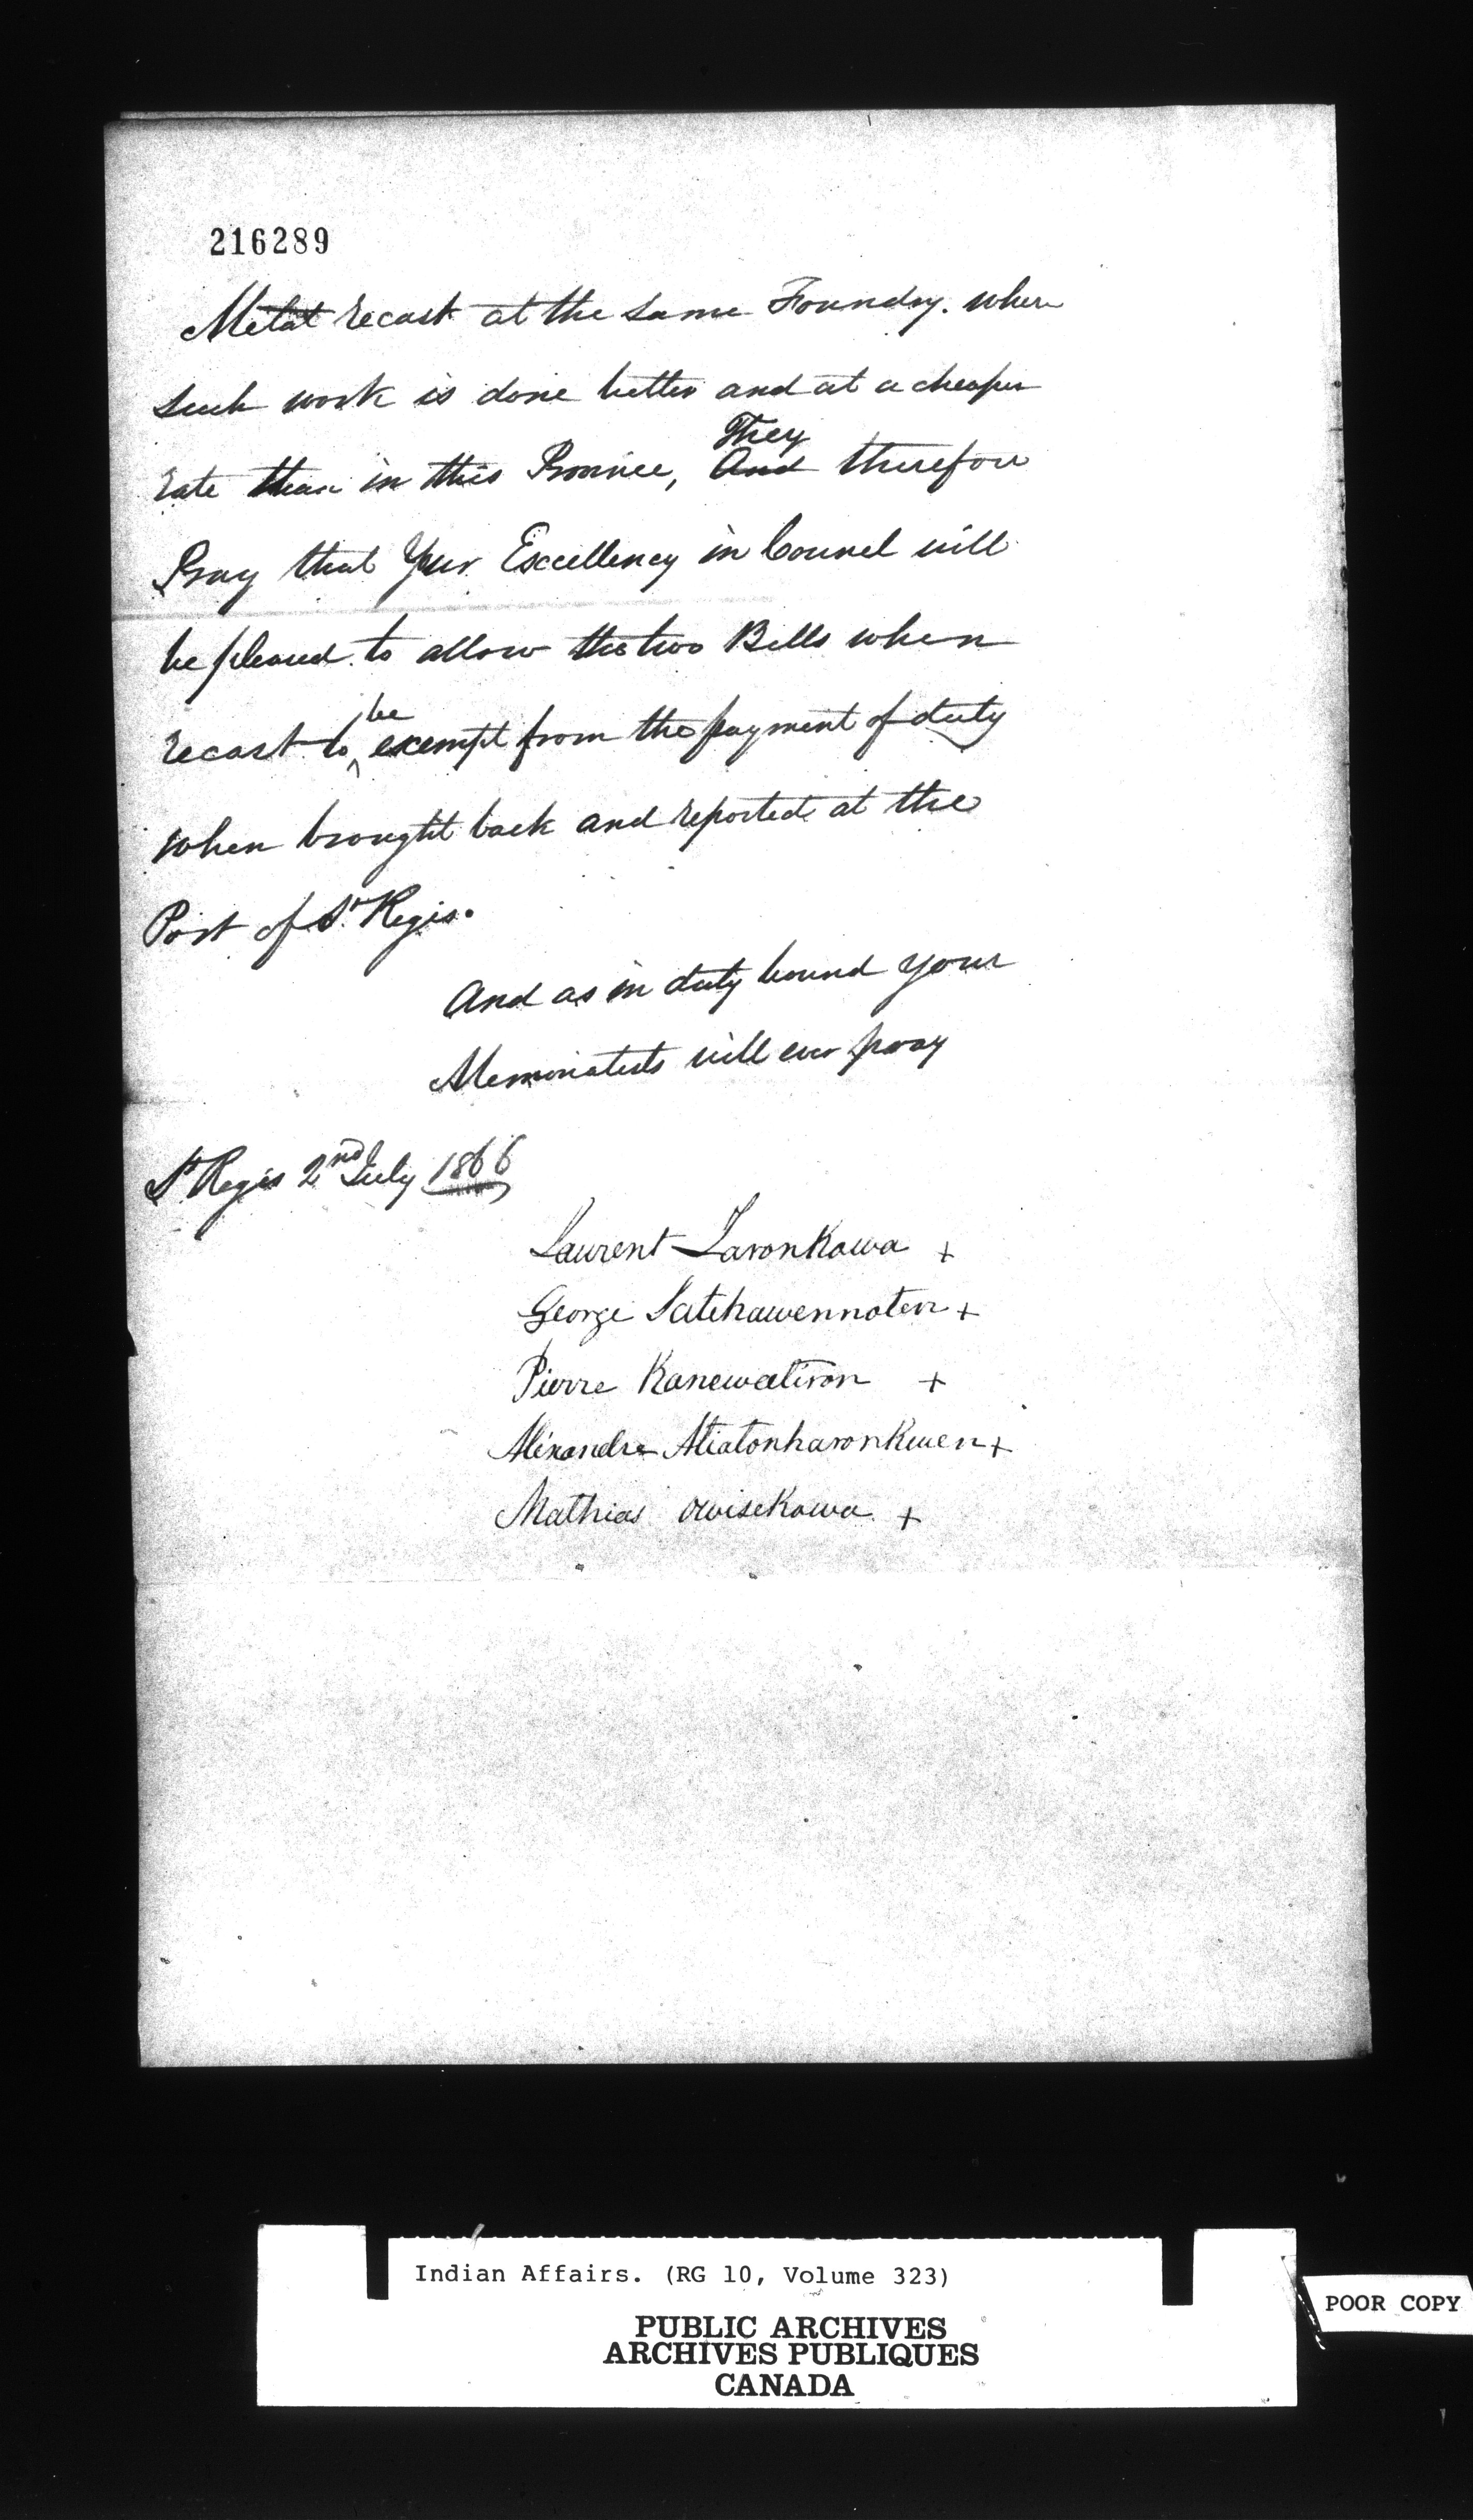 216289
Metal recast at the same Foundry. where
such work is done better and at a cheaper
rate than in this Province, They And therefore
Pray that Your Excellency in Councel will
be pleased to allow the two Bells when
recast to be exempt from the payment of duty
when brought back and reported at the
Port of St Regis.
And as in duty bound your
Memorialists will ever pray
St Regis 2nd July 1866
Laurent Taronkowa +
George Satehawennoten +
Pierre Kanewatiron +
Alexandre Atiatonharonkwen +
Mathias Owisekowa +
Indian Affairs. (RG 10, Volume 323)
PUBLIC ARCHIVES
ARCHIVES PUBLIQUES
CANADA
POOR COPY